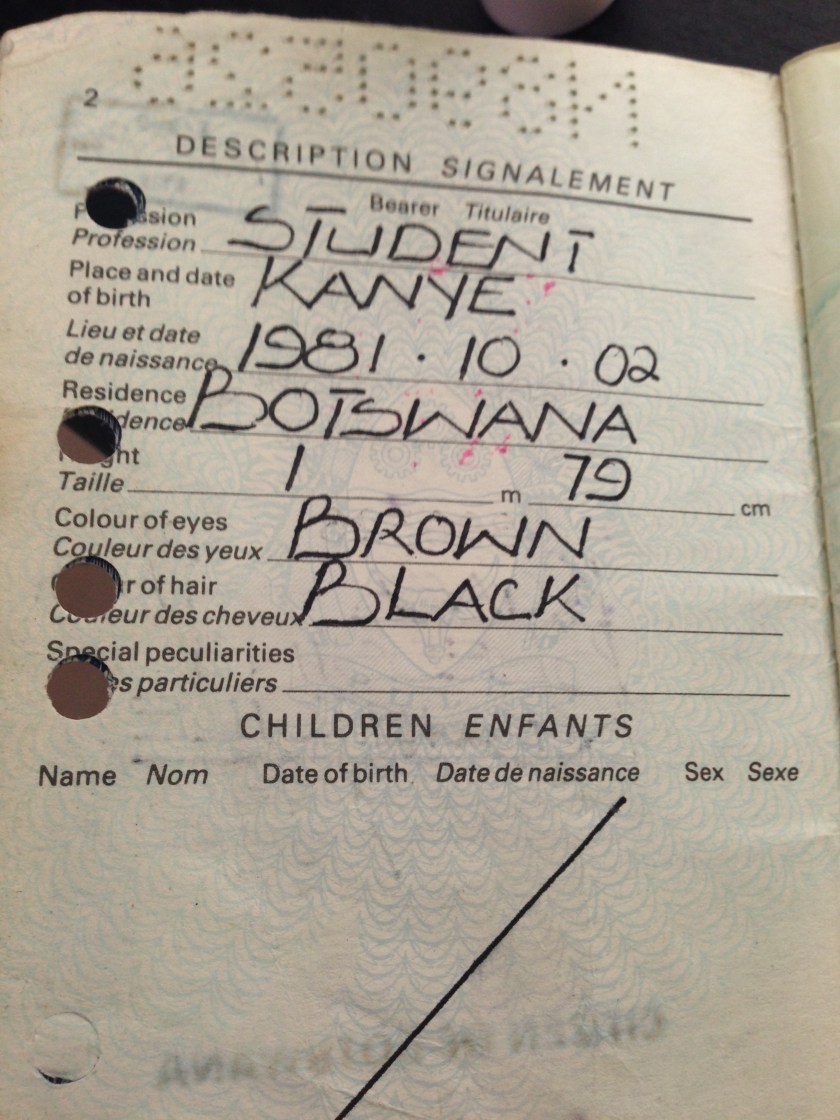 2
DESCRIPTION SIGNALEMENT
Bearer Titulaire
Profession STUDENT
Place and date
of birth KANYE
Lieu et date
de naissance 1981 · 10 · 02
Residence
BOTSWANA
Taille 1 m 79 cm
Colour of eyes
Couleur des yeux BROWN
of hair
des cheveux BLACK
Special peculiarities
particuliers
CHILDREN ENFANTS
Name Nom Date of birth Date de naissance Sex Sexe